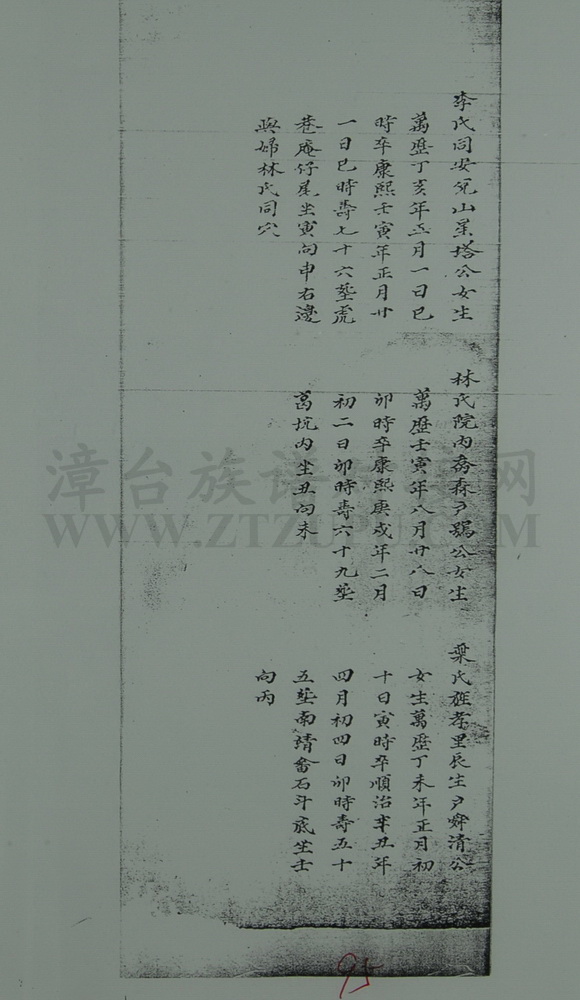 李氏同安兌山星塔公女生
萬歷丁亥年正月一日巳
時卒康熙壬寅年正月廿
一日巳時壽七十六塟虎
巷庵仔尾坐寅向申右邊
與婦林氏同穴
林氏院內喬森戶鶚公女生
萬歷壬寅年八月廿八日
卯時卒康熙庚戌年二月
初二日卯時壽六十九塟
葛坑內坐丑向未
葉氏旌孝里長生戶舜清公
女生萬歷丁未年正月初
十日寅時卒順治辛丑年
四月初四日卯時壽五十
五塟南靖畬石斗底坐壬
向丙
漳台族谱 网
WWW.ZTZUPU.COM
95